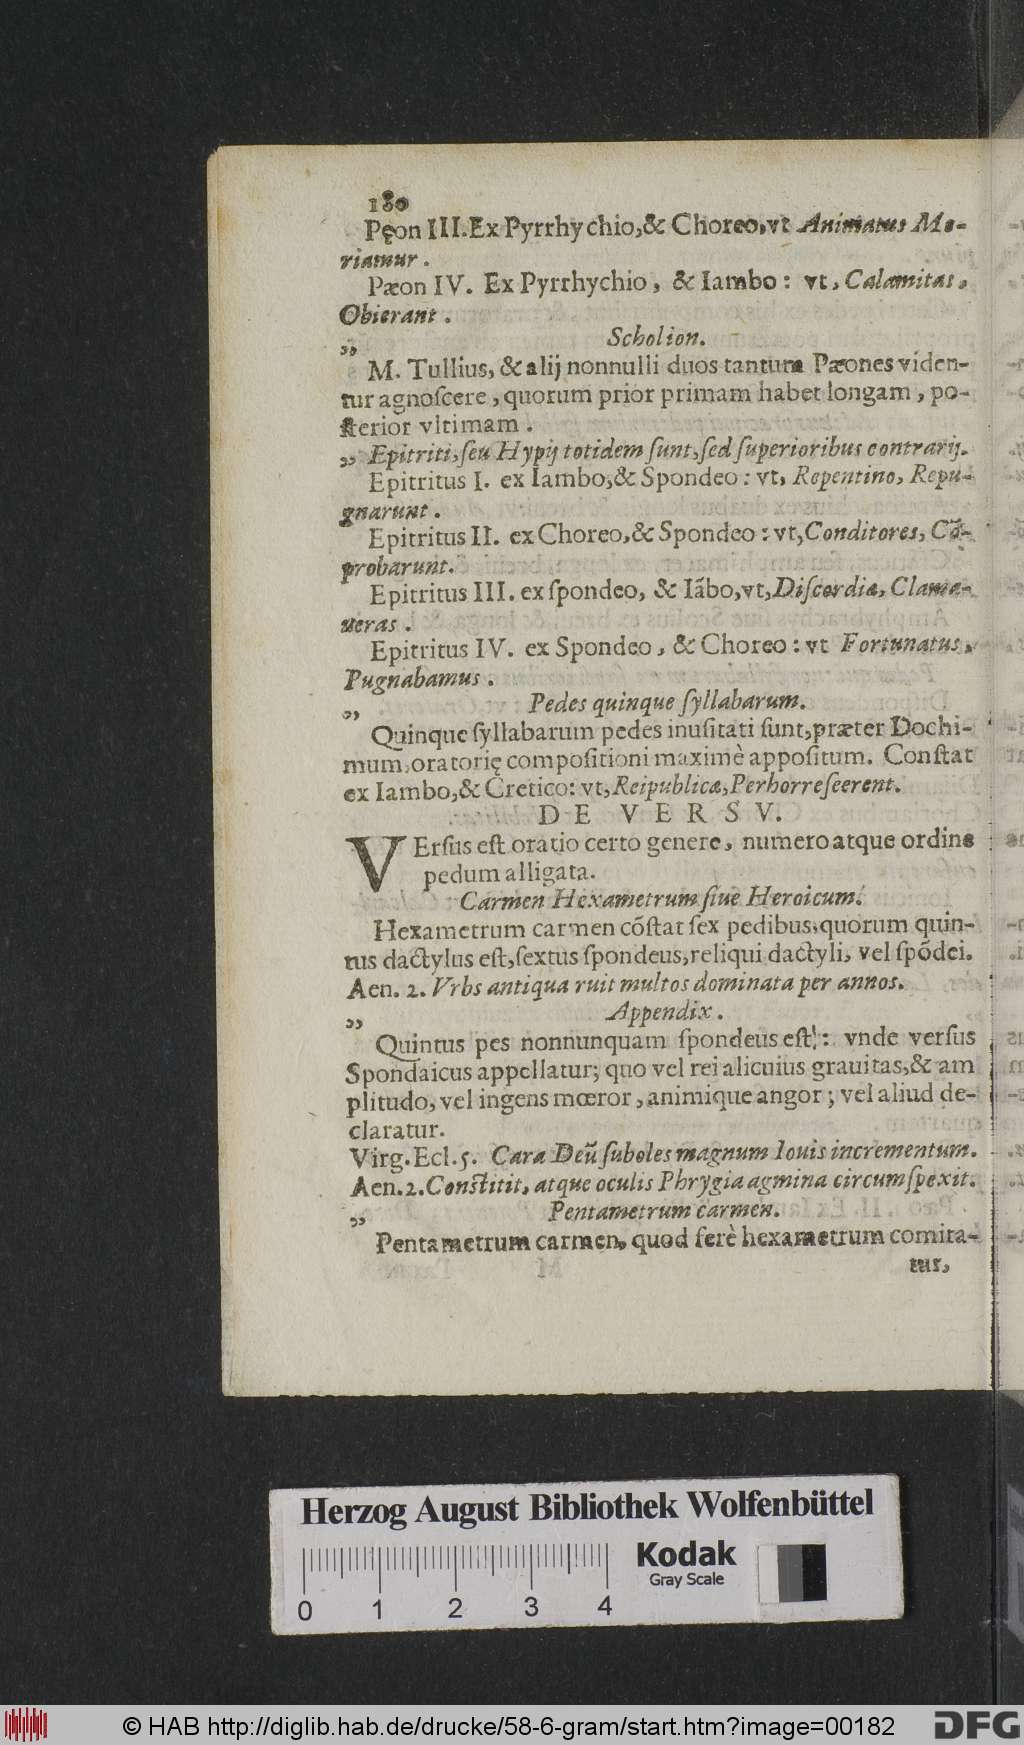 180
Pęon III. Ex Pyrrhychio, & Choreo, vt Animatus Mo-
riamur.
Pæon IV. Ex Pyrrhychio, & Iambo: vt, Calamitas,
Obierant.
Scholion.
„ M. Tullius, & alij nonnulli duos tantum Pæones viden-
tur agnoſcere, quorum prior primam habet longam, po-
ſterior vltimam.
„ Epitriti, ſeu Hypij totidem ſunt, ſed ſuperioribus contrarij.
Epitritus I. ex Iambo, & Spondeo: vt, Repentino, Repu-
gnarunt.
Epitritus II. ex Choreo, & Spondeo: vt, Conditores, Cō-
probarunt.
Epitritus III. ex ſpondeo, & Iābo, vt, Diſcordia, Clama-
ueras.
Epitritus IV. ex Spondeo, & Choreo: vt Fortunatus,
Pugnabamus.
Pedes quinque ſyllabarum.
„ Quinque ſyllabarum pedes inuſitati ſunt, præter Dochi-
mum, oratorię compoſitioni maximè appoſitum. Conſtat
ex Iambo, & Cretico: vt, Reipublicæ, Perhorreſeerent.
DE VERSV.
VErſus eſt oratio certo genere, numero atque ordine
pedum alligata.
Carmen Hexametrum ſiue Heroicum.
Hexametrum carmen cōſtat ſex pedibus, quorum quin-
tus dactylus eſt, ſextus ſpondeus, reliqui dactyli, vel ſpōdei.
Aen. 2. Vrbs antiqua ruit multos dominata per annos.
Appendix.
„ Quintus pes nonnunquam ſpondeus eſt!: vnde verſus
Spondaicus appellatur; quo vel rei alicuius grauitas, & am
plitudo, vel ingens mœror, animique angor; vel aliud de-
claratur.
Virg. Ecl. 5. Cara Deū ſuboles magnum Iouis incrementum.
Aen. 2. Conſtitit, atque oculis Phrygia agmina circumſpexit.
Pentametrum carmen.
„ Pentametrum carmen, quod ferè hexametrum comita-
tur,
Herzog August Bibliothek Wolfenbüttel
Kodak
Gray Scale
0 1 2 3 4
© HAB http://diglib.hab.de/drucke/58-6-gram/start.htm?image=00182
DFG